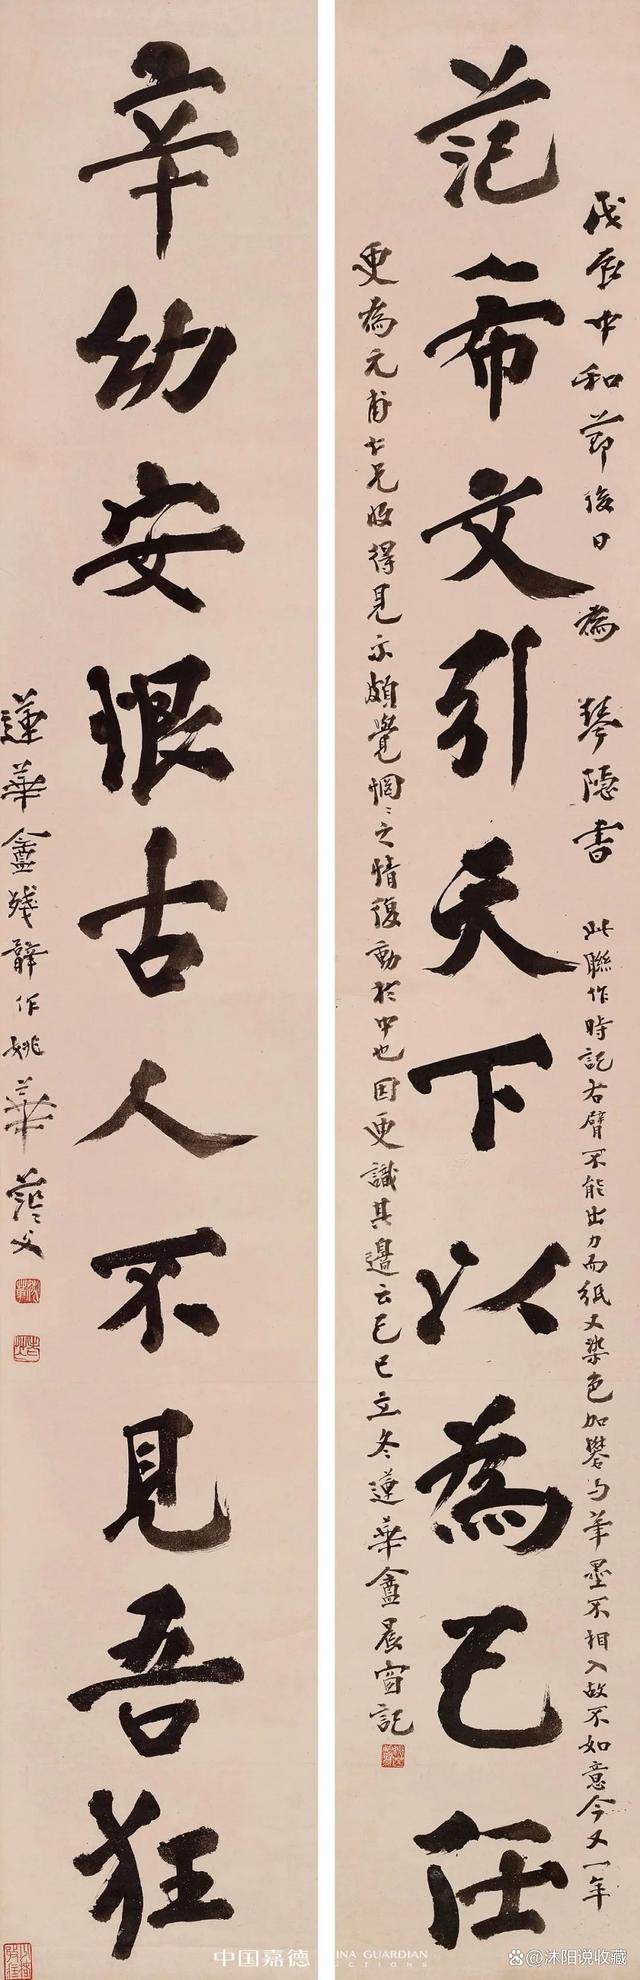 戊辰中和節後日 為 琴隱書 此聯作時記右臂不能出力而紙又染色加礬與筆墨不相入故不如意今又一年
范希文引天下以為己任
更為元甫七兄收得見示頗覺惘惘之情復動於中也因更識其邊云己巳立冬蓮華盦晨窗記
辛幼安恨古人不見吾狂
蓮華盦殘臂作姚華茫父
中国嘉德
INA GUARDIAN
CTIONS
沐阳说收藏